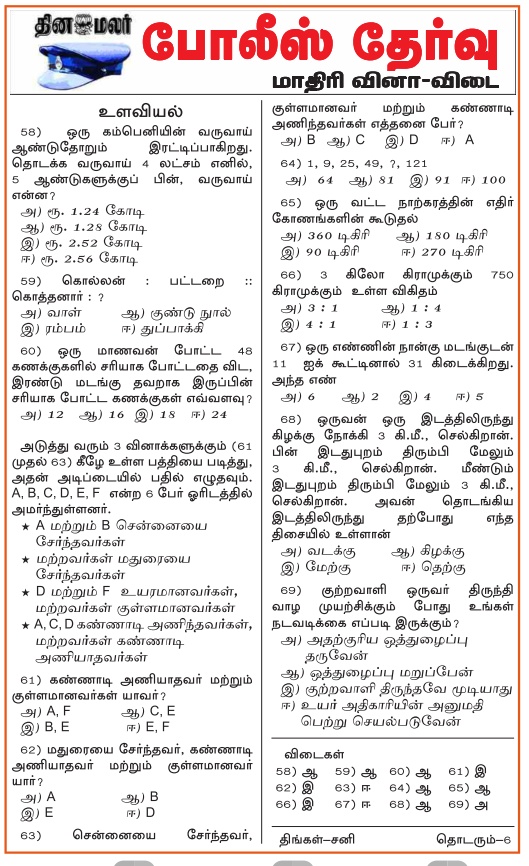 தின மலர்
போலீஸ் தேர்வு
மாதிரி வினா-விடை
உளவியல்
58) ஒரு கம்பெனியின் வருவாய்
ஆண்டுதோறும் இரட்டிப்பாகிறது.
தொடக்க வருவாய் 4 லட்சம் எனில்,
5 ஆண்டுகளுக்குப் பின், வருவாய்
என்ன?
அ) ரூ. 1.24 கோடி
ஆ) ரூ. 1.28 கோடி
இ) ரூ. 2.52 கோடி
ஈ) ரூ. 2.56 கோடி
59) கொல்லன் : பட்டறை ::
கொத்தனார் : ?
அ) வாள் ஆ) குண்டு நூல்
இ) ரம்பம் ஈ) துப்பாக்கி
60) ஒரு மாணவன் போட்ட 48
கணக்குகளில் சரியாக போட்டதை விட,
இரண்டு மடங்கு தவறாக இருப்பின்
சரியாக போட்ட கணக்குகள் எவ்வளவு?
அ) 12 ஆ) 16 இ) 18 ஈ) 24
அடுத்து வரும் 3 வினாக்களுக்கும் (61
முதல் 63) கீழே உள்ள பத்தியை படித்து,
அதன் அடிப்படையில் பதில் எழுதவும்.
A, B, C, D, E, F என்ற 6 பேர் ஓரிடத்தில்
அமர்ந்துள்ளனர்.
★ A மற்றும் B சென்னையை
சேர்ந்தவர்கள்
★ மற்றவர்கள் மதுரையை
சேர்ந்தவர்கள்
★ D மற்றும் F உயரமானவர்கள்,
மற்றவர்கள் குள்ளமானவர்கள்
★ A, C, D கண்ணாடி அணிந்தவர்கள்,
மற்றவர்கள் கண்ணாடி
அணியாதவர்கள்
61) கண்ணாடி அணியாதவர் மற்றும்
குள்ளமானவர்கள் யாவர்?
அ) A, F ஆ) C, E
இ) B, E ஈ) E, F
62) மதுரையை சேர்ந்தவர், கண்ணாடி
அணியாதவர் மற்றும் குள்ளமானவர்
யார்?
அ) A ஆ) B
இ) E ஈ) D
63) சென்னையை சேர்ந்தவர்,
குள்ளமானவர் மற்றும் கண்ணாடி
அணிந்தவர்கள் எத்தனை பேர்?
அ) B ஆ) C இ) D ஈ) A
64) 1, 9, 25, 49, ?, 121
அ) 64 ஆ) 81 இ) 91 ஈ) 100
65) ஒரு வட்ட நாற்கரத்தின் எதிர்
கோணங்களின் கூடுதல்
அ) 360 டிகிரி ஆ) 180 டிகிரி
இ) 90 டிகிரி ஈ) 270 டிகிரி
66) 3 கிலோ கிராமுக்கும் 750
கிராமுக்கும் உள்ள விகிதம்
அ) 3 : 1 ஆ) 1 : 4
இ) 4 : 1 ஈ) 1 : 3
67) ஒரு எண்ணின் நான்கு மடங்குடன்
11 ஐக் கூட்டினால் 31 கிடைக்கிறது.
அந்த எண்
அ) 6 ஆ) 2 இ) 4 ஈ) 5
68) ஒருவன் ஒரு இடத்திலிருந்து
கிழக்கு நோக்கி 3 கி.மீ., செல்கிறான்.
பின் இடதுபுறம் திரும்பி மேலும்
3 கி.மீ., செல்கிறான். மீண்டும்
இடதுபுறம் திரும்பி மேலும் 3 கி.மீ.,
செல்கிறான். அவன் தொடங்கிய
இடத்திலிருந்து தற்போது எந்த
திசையில் உள்ளான்
அ) வடக்கு ஆ) கிழக்கு
இ) மேற்கு ஈ) தெற்கு
69) குற்றவாளி ஒருவர் திருந்தி
வாழ முயற்சிக்கும் போது உங்கள்
நடவடிக்கை எப்படி இருக்கும்?
அ) அதற்குரிய ஒத்துழைப்பு
தருவேன்
ஆ) ஒத்துழைப்பு மறுப்பேன்
இ) குற்றவாளி திருந்தவே முடியாது
ஈ) உயர் அதிகாரியின் அனுமதி
பெற்று செயல்படுவேன்
விடைகள்
58) ஆ 59) ஆ 60) ஆ 61) இ
62) இ 63) ஈ 64) ஆ 65) ஆ
66) இ 67) ஈ 68) ஆ 69) அ
திங்கள்-சனி தொடரும்-6